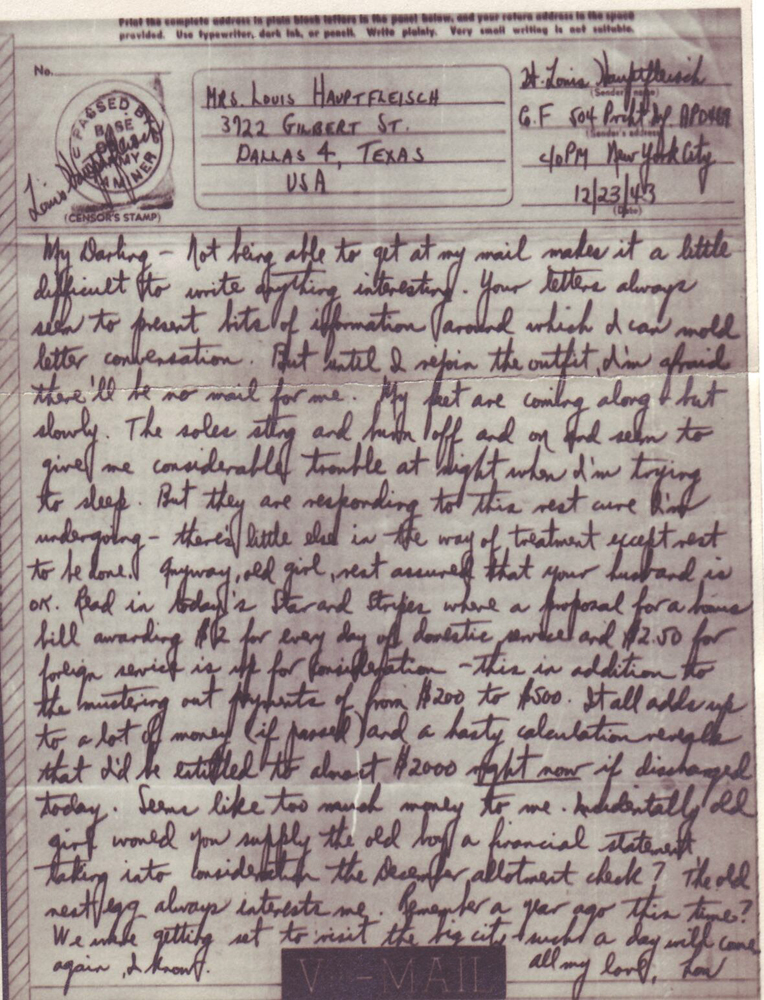 Print the complete address in plain block letters in the panel below, and your return address in the space
provided. Use typewriter, dark ink, or pencil. Write plainly. Very small writing is not suitable.
No.
PASSED BY
BASE
ARMY
EXAMINER
Louis Hauptfleisch
(CENSOR'S STAMP)
MRS. LOUIS HAUPTFLEISCH
3722 GILBERT ST.
DALLAS 4, TEXAS
USA
Lt. Louis Hauptfleisch
(Sender's name)
Co. F 504 Prcht Inf. APO 469
(Sender's address)
c/o PM New York City
12/23/43
(Date)
My Darling – Not being able to get at my mail makes it a little
difficult to write anything interesting. Your letters always
seem to present bits of information around which I can mold
letter conversation. But until I rejoin the outfit, I'm afraid
there'll be no mail for me. My feet are coming along – but
slowly. The soles sting and burn off and on and seem to
give me considerable trouble at night when I'm trying
to sleep. But they are responding to this rest cure I'm
undergoing – there's little else in the way of treatment except rest
to be done. Anyway, old girl, rest assured that your husband is
OK. Read in today's Star and Stripes where a proposal for a bonus
bill awarding $2 for every day of domestic service and $2.50 for
foreign service is up for consideration – this in addition to
the mustering out payments of from $200 to $500. It all adds up
to a lot of money (if passed) and a hasty calculation reveals
that I'd be entitled to almost $2000 right now if discharged
today. Seems like too much money to me. Incidentally old
girl would you supply the old boy a financial statement
taking into consideration the December allotment check? The old
nest egg always interests me. Remember a year ago this time?
We were getting set to visit the big city – such a day will come
again, I know.
all my love, Lou
V-MAIL